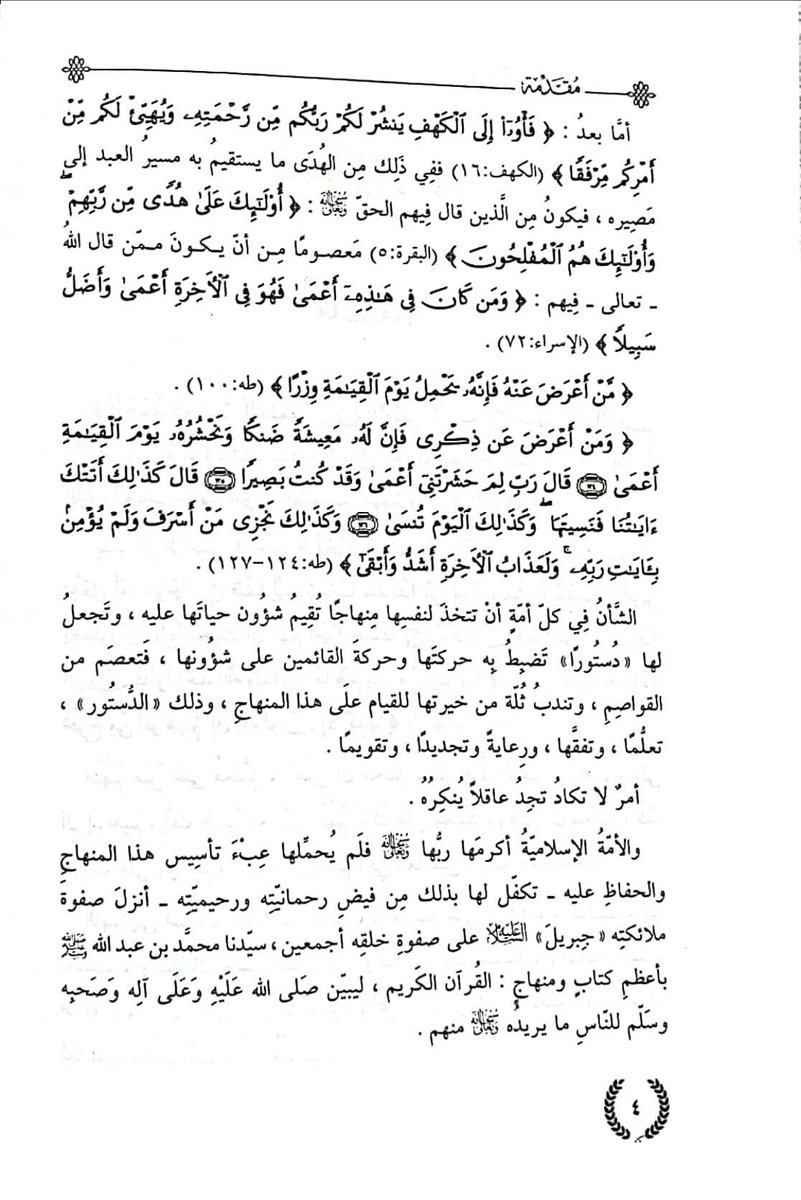 مُقَدِّمة
أمَّا بعدُ : ﴿ فَأْوُۥٓا۟ إِلَى ٱلْكَهْفِ يَنشُرْ لَكُمْ رَبُّكُم مِّن رَّحْمَتِهِۦ وَيُهَيِّئْ لَكُم مِّنْ
أَمْرِكُم مِّرْفَقًا ﴾ (الكهف:١٦) ففِي ذَلِك مِن الهُدَى ما يستقيمُ به مسيرُ العبد إلى
مَصِيره ، فيكونُ مِن الَّذين قال فِيهم الحقّ ﷾ : ﴿ أُو۟لَـٰٓئِكَ عَلَىٰ هُدًى مِّن رَّبِّهِمْ ۖ
وَأُو۟لَـٰٓئِكَ هُمُ ٱلْمُفْلِحُونَ ﴾ (البقرة:٥) مَعصومًا مِـن أنّ يكـونَ ممّن قال اللهُ
ـ تعالى ـ فِيهم : ﴿ وَمَن كَانَ فِى هَـٰذِهِۦٓ أَعْمَىٰ فَهُوَ فِى ٱلْـَٔاخِرَةِ أَعْمَىٰ وَأَضَلُّ
سَبِيلًا ﴾ (الإسراء:٧٢) .
﴿ مَّنْ أَعْرَضَ عَنْهُ فَإِنَّهُۥ يَحْمِلُ يَوْمَ ٱلْقِيَـٰمَةِ وِزْرًا ﴾ (طه:١٠٠) .
﴿ وَمَنْ أَعْرَضَ عَن ذِكْرِى فَإِنَّ لَهُۥ مَعِيشَةً ضَنكًا وَنَحْشُرُهُۥ يَوْمَ ٱلْقِيَـٰمَةِ
أَعْمَىٰ ﴿١٢٤﴾ قَالَ رَبِّ لِمَ حَشَرْتَنِىٓ أَعْمَىٰ وَقَدْ كُنتُ بَصِيرًا ﴿١٢٥﴾ قَالَ كَذَٰلِكَ أَتَتْكَ
ءَايَـٰتُنَا فَنَسِيتَهَا ۖ وَكَذَٰلِكَ ٱلْيَوْمَ تُنسَىٰ ﴿١٢٦﴾ وَكَذَٰلِكَ نَجْزِى مَنْ أَسْرَفَ وَلَمْ يُؤْمِنۢ
بِـَٔايَـٰتِ رَبِّهِۦ ۚ وَلَعَذَابُ ٱلْـَٔاخِرَةِ أَشَدُّ وَأَبْقَىٰٓ ﴾ (طه:١٢٤-١٢٧) .
الشَّأنُ فِي كلّ أمّةٍ أنْ تتخذَ لنفسِها مِنهاجًا تُقِيمُ شؤون حياتَها عليه ، وتَجعلُ
لها «دُستورًا» تَضبِطُ بِه حركتَها وحركةَ القائمين على شؤونها ، فَتعصَم من
القواصِمِ ، وتندبُ ثُلّة من خيرتها للقيام علَى هذا المنهاجِ ، وذلك «الدُّستُور» ،
تعلُّمًا ، وتفقُّها ، ورِعايةً وتجديدًا ، وتقويمًا .
أمرٌ لا تكادُ تجِدُ عاقلاً يُنكِرُهُ .
والأمّةُ الإسلاميّةُ أكرمَها ربُّها ﷾ فلَم يُحمِّلها عِبْءَ تأسِيس هذا المنهاجِ
والحفاظِ عليه ـ تكفّل لها بذلك مِن فيضِ رحمانيّتِه ورحيميّتِه ـ أنزلَ صفوة
ملائكتِه «جِبريلَ» عليه السلام على صفوةِ خلقِه أجمعين ، سيّدنا محمَّد بن عبد الله ﷺ
بأعظمِ كتابٍ ومنهاجٍ : القُرآن الكَريم ، ليبيّن صَلى الله عَلَيْهِ وَعَلَى آلِه وَصَحبِه
وسَلّم للنّاسِ ما يريدُه ﷾ منهم .
٤